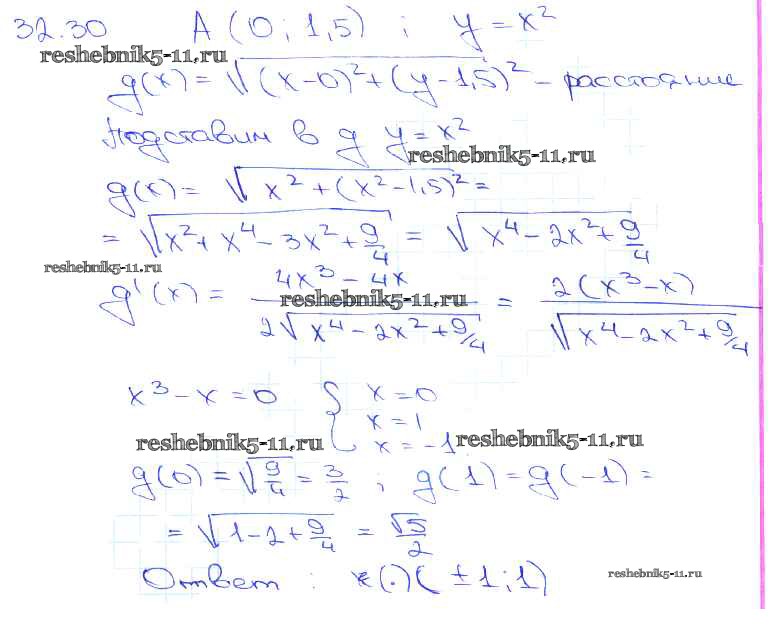 32.30 A (0; 1,5) ; y = x²
reshebnik5-11.ru
g(x) = √((x-0)² + (y-1,5)²) - расстояние
Подставим в g y = x²
reshebnik5-11.ru
g(x) = √(x² + (x²-1,5)²) =
= √(x² + x⁴ - 3x² + 9/4) = √(x⁴ - 2x² + 9/4)
reshebnik5-11.ru
g'(x) = (4x³ - 4x)/(2√(x⁴ - 2x² + 9/4)) = 2(x³ - x)/√(x⁴ - 2x² + 9/4)
reshebnik5-11.ru
x³ - x = 0 { x = 0
x = 1
x = -1
reshebnik5-11.ru reshebnik5-11.ru
g(0) = √(9/4) = 3/2 ; g(1) = g(-1) =
= √(1 - 2 + 9/4) = √5/2
Ответ : (·)(±1; 1)
reshebnik5-11.ru